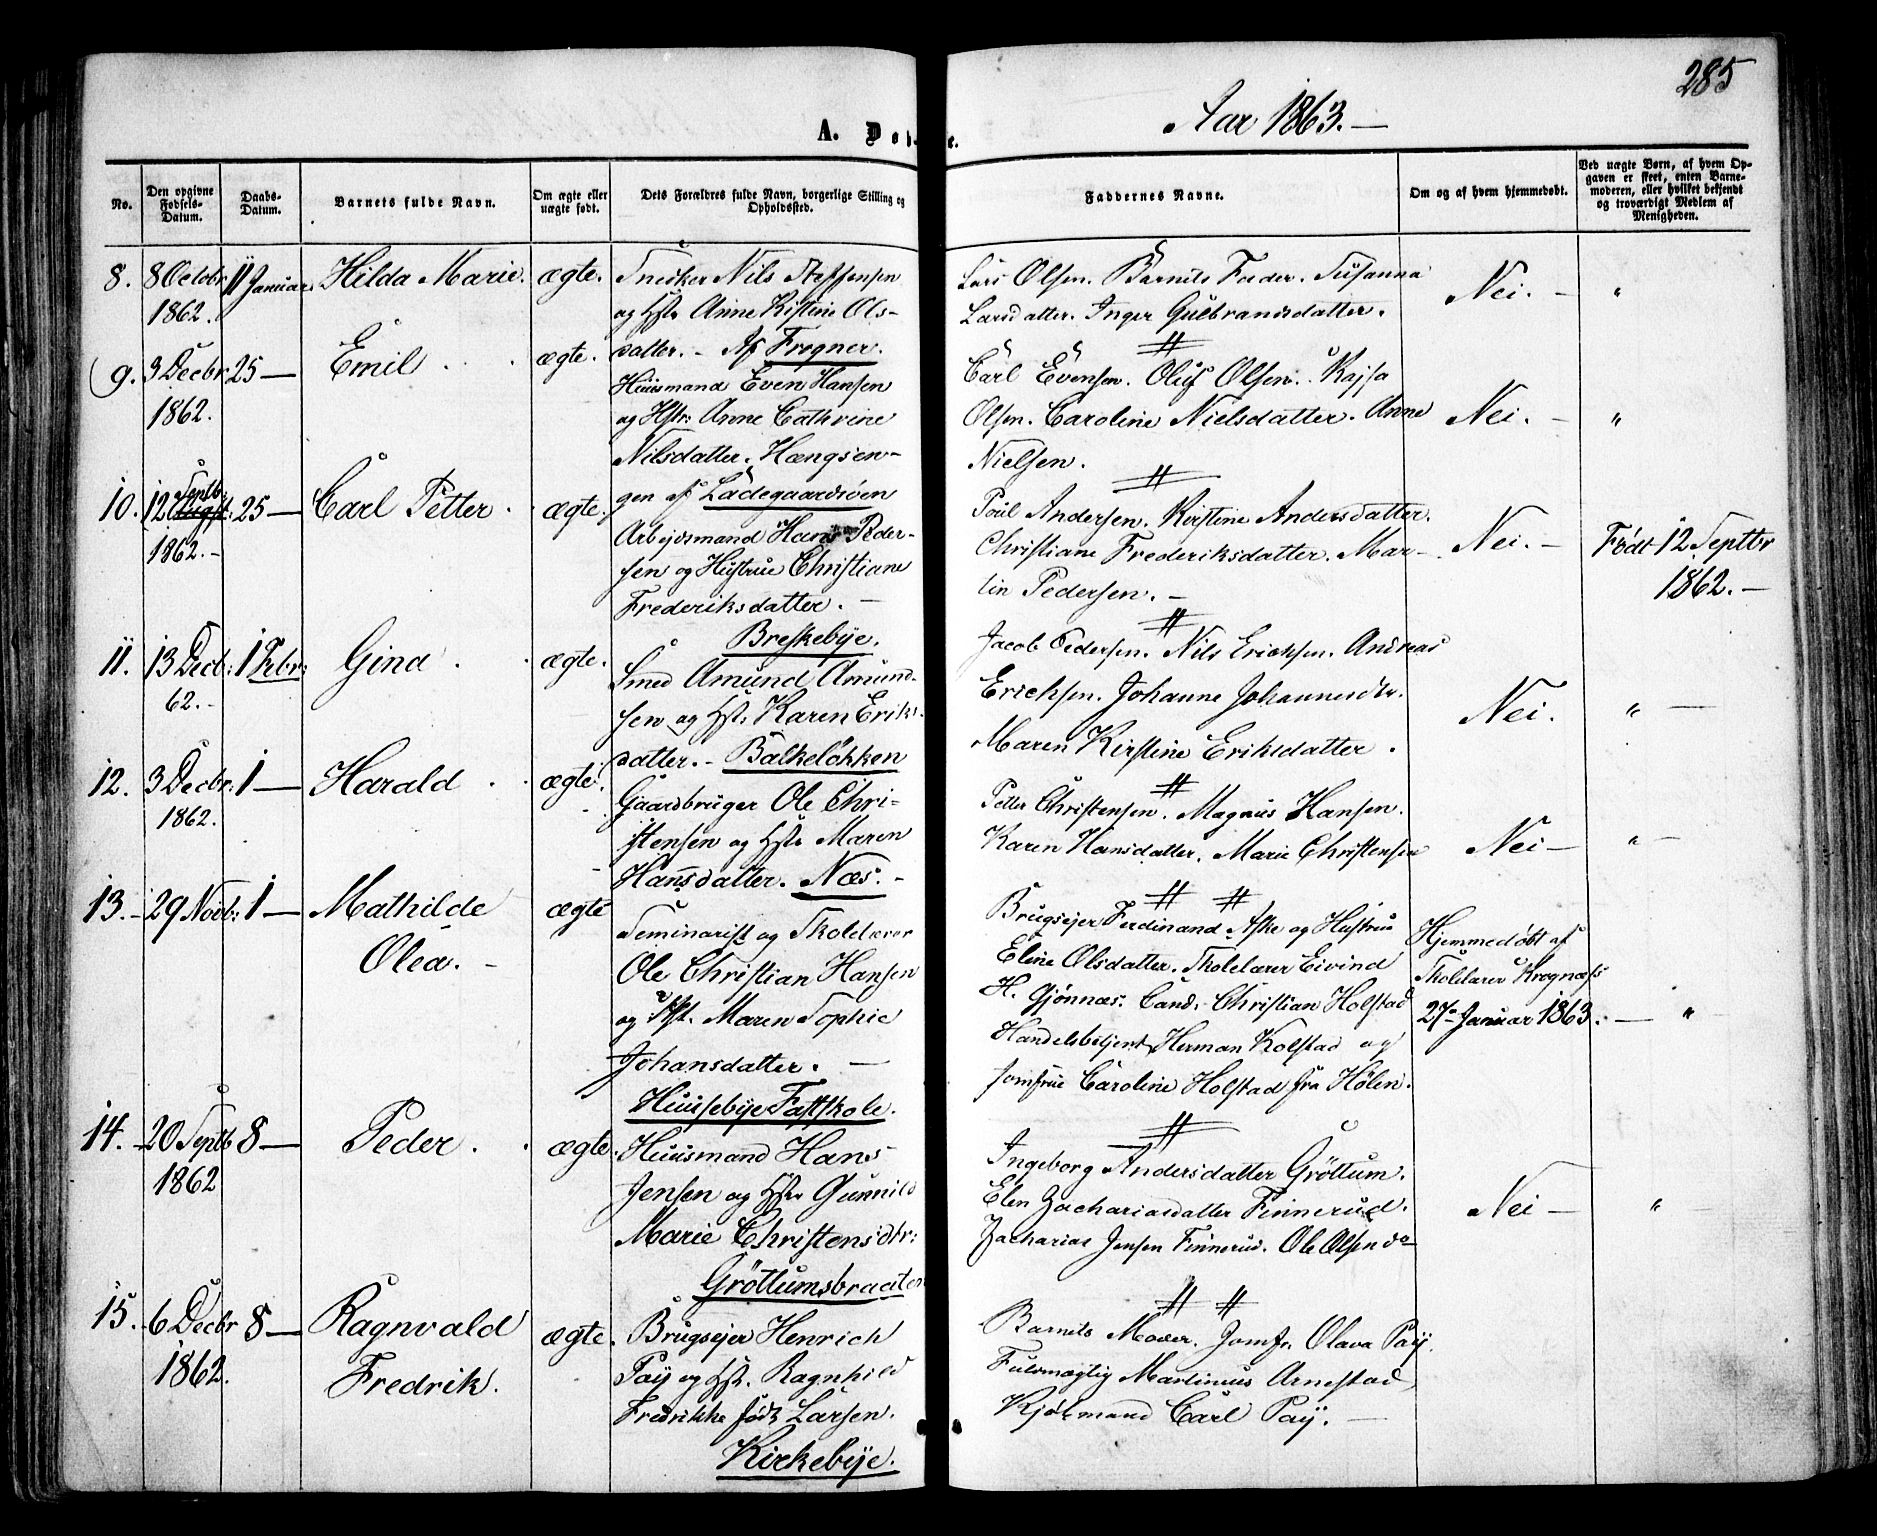 285
Aar 1863. —
A. Dob- e.
No.
Den opgivne Fødsels-Datum.
Daabs-Datum.
Barnets fulde Navn.
Om ægte eller uægte født.
Dets Forældres fulde Navn, borgerlige Stilling og Opholdssted.
Faddernes Navne.
Om og af hvem hjemmedøbt.
Ved uægte Børn, af hvem Opgaven er skeet, enten Barnemoderen, eller hvilket bekjendt og troværdigt Medlem af Menigheden.
8. 8 Octobr 1862. 11 Januar. Hilda Marie. ægte.
Snedker Nils Steffensen
og Hstr Anne Kistine Ols-
datter. - Af Frogner.
Lars Olsen. Barnets Fader. Susanna
Larsdatter. Inger Gulbrandsdatter.
Nei. — "
9. 3 Decbr 1862. 25 — Emil. ægte.
Huusmand Even Hansen
og Hstr: Anne Cathrine
Nilsdatter. Hængsen-
gen af Ladegaardsøen
Carl Evensen. Oluf Olsen. Kajsa
Olsen. Caroline Nielsdatter. Anne
Nielsen.
Nei. — "
10. 12 Septb: Augst. 1862. - 25 — Carl Petter. ægte.
Arbejdsmand Hans Peder-
sen og Hustrue Christiane
Frederiksdatter. —
Breskebye.
Poul Andersen. Kirstine Andersdatter.
Christiane Frederiksdatter. Mar-
tin Pedersen. —
Nei. — Født 12 Septbr
1862. —
11. 13 Decb: 62. - 1 Febr: Gina. ægte.
Smed Amund Amund-
sen og Hst: Karen Eriks-
datter. - Balkeløkken
Jacob Pedersen. Nils Ericksen. Andreas
Ericksen. Johanne Johannesdtr.
Maren Kirstine Eriksdatter.
Nei. " —
12. 3 Decbr: 1862. 1 — Harald. ægte.
Gaardbruger Ole Chri-
stensen og Hstr Maren
Hansdatter. Næs. -
Petter Christensen. Magnus Hansen.
Karen Hansdatter. Marie Christensen
Nei — " —
13. - 29 Novb: 1 — Mathilde
Olea. - ægte
Seminarist og Skolelærer
Ole Christian Hansen
og Hst. Maren Sophie
Johansdatter. —
Huusebye Fastskole.
Brugsejer Ferdinand Aske og Hustrue
Eline Olsdatter. Skolelærer Eivind
H. Gjønnæs. Cand. Christian Holstad
Handelsbetjent Herman Kolstad og
Jomfrue Caroline Holstad fra Hølen.
Hjemmedøbt af
Skolelærer Krognæss
27 Januar 1863. — "
14. - 20 Septb 1862 8 — Peder. ægte.
Huusmand Hans
Jensen og Hstr Gunnild
Marie Christensdtr:
Grøttumsbraaten
Ingeborg Andersdatter Grøttum.
Elen Zachariasdatter Finnerud.
Zacharias Jensen Finnerud. Ole Olsen do
Nei — "
15. 6 Decbr 1862. 8 — Ragnvald
Fredrik. ægte.
Brugsejer Henrich
Paÿ og Hst. Ragnhild
Fredrikke født Larsen.
Kirkebye.
Barnets Moder. Jomfr. Olava Paÿ.
Fuldmægtig Martinius Arnestad
Kjøbmand Carl Paÿ. —